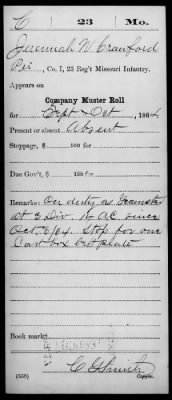 C 23 Mo.
Jeremiah N. Crawford
Pvt, Co. I, 23 Reg't Missouri Infantry.
Appears on
Company Muster Roll
for Sept & Oct, 1864
Present or absent Absent
Stoppage, $ 100 for
Due Gov't, $ 100 for
Remarks: On duty as Teamster
at 3 Div. 14 A.C. since
Oct. 6/64. Stop for one
Cart box belt plate
Book mark:
(358)
C G Smith
Copyist.